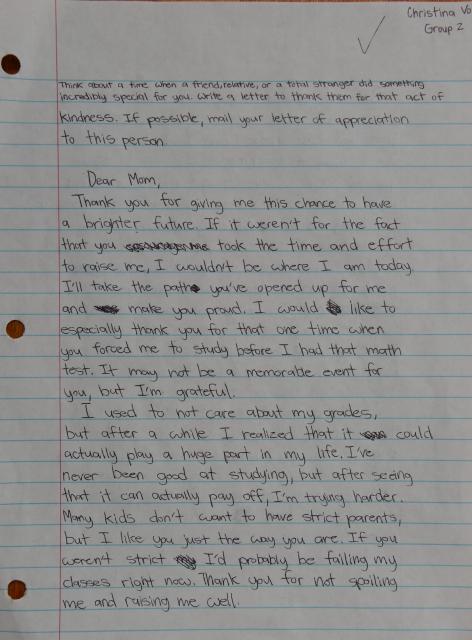 Christina Vo
Group 2
Think about a time when a friend, relative, or a total stranger did something
incredibly special for you. Write a letter to thank them for that act of
kindness. If possible, mail your letter of appreciation
to this person.
Dear Mom,
Thank you for giving me this chance to have
a brighter future. If it weren't for the fact
that you took the time and effort
to raise me, I wouldn't be where I am today.
I'll take the path you've opened up for me
and make you proud. I would like to
especially thank you for that one time when
you forced me to study before I had that math
test. It may not be a memorable event for
you, but I'm grateful.
I used to not care about my grades,
but after a while I realized that it could
actually play a huge part in my life. I've
never been good at studying, but after seeing
that it can actually pay off, I'm trying harder.
Many kids don't want to have strict parents,
but I like you just the way you are. If you
weren't strict I'd probably be failing my
classes right now. Thank you for not spoiling
me and raising me well.